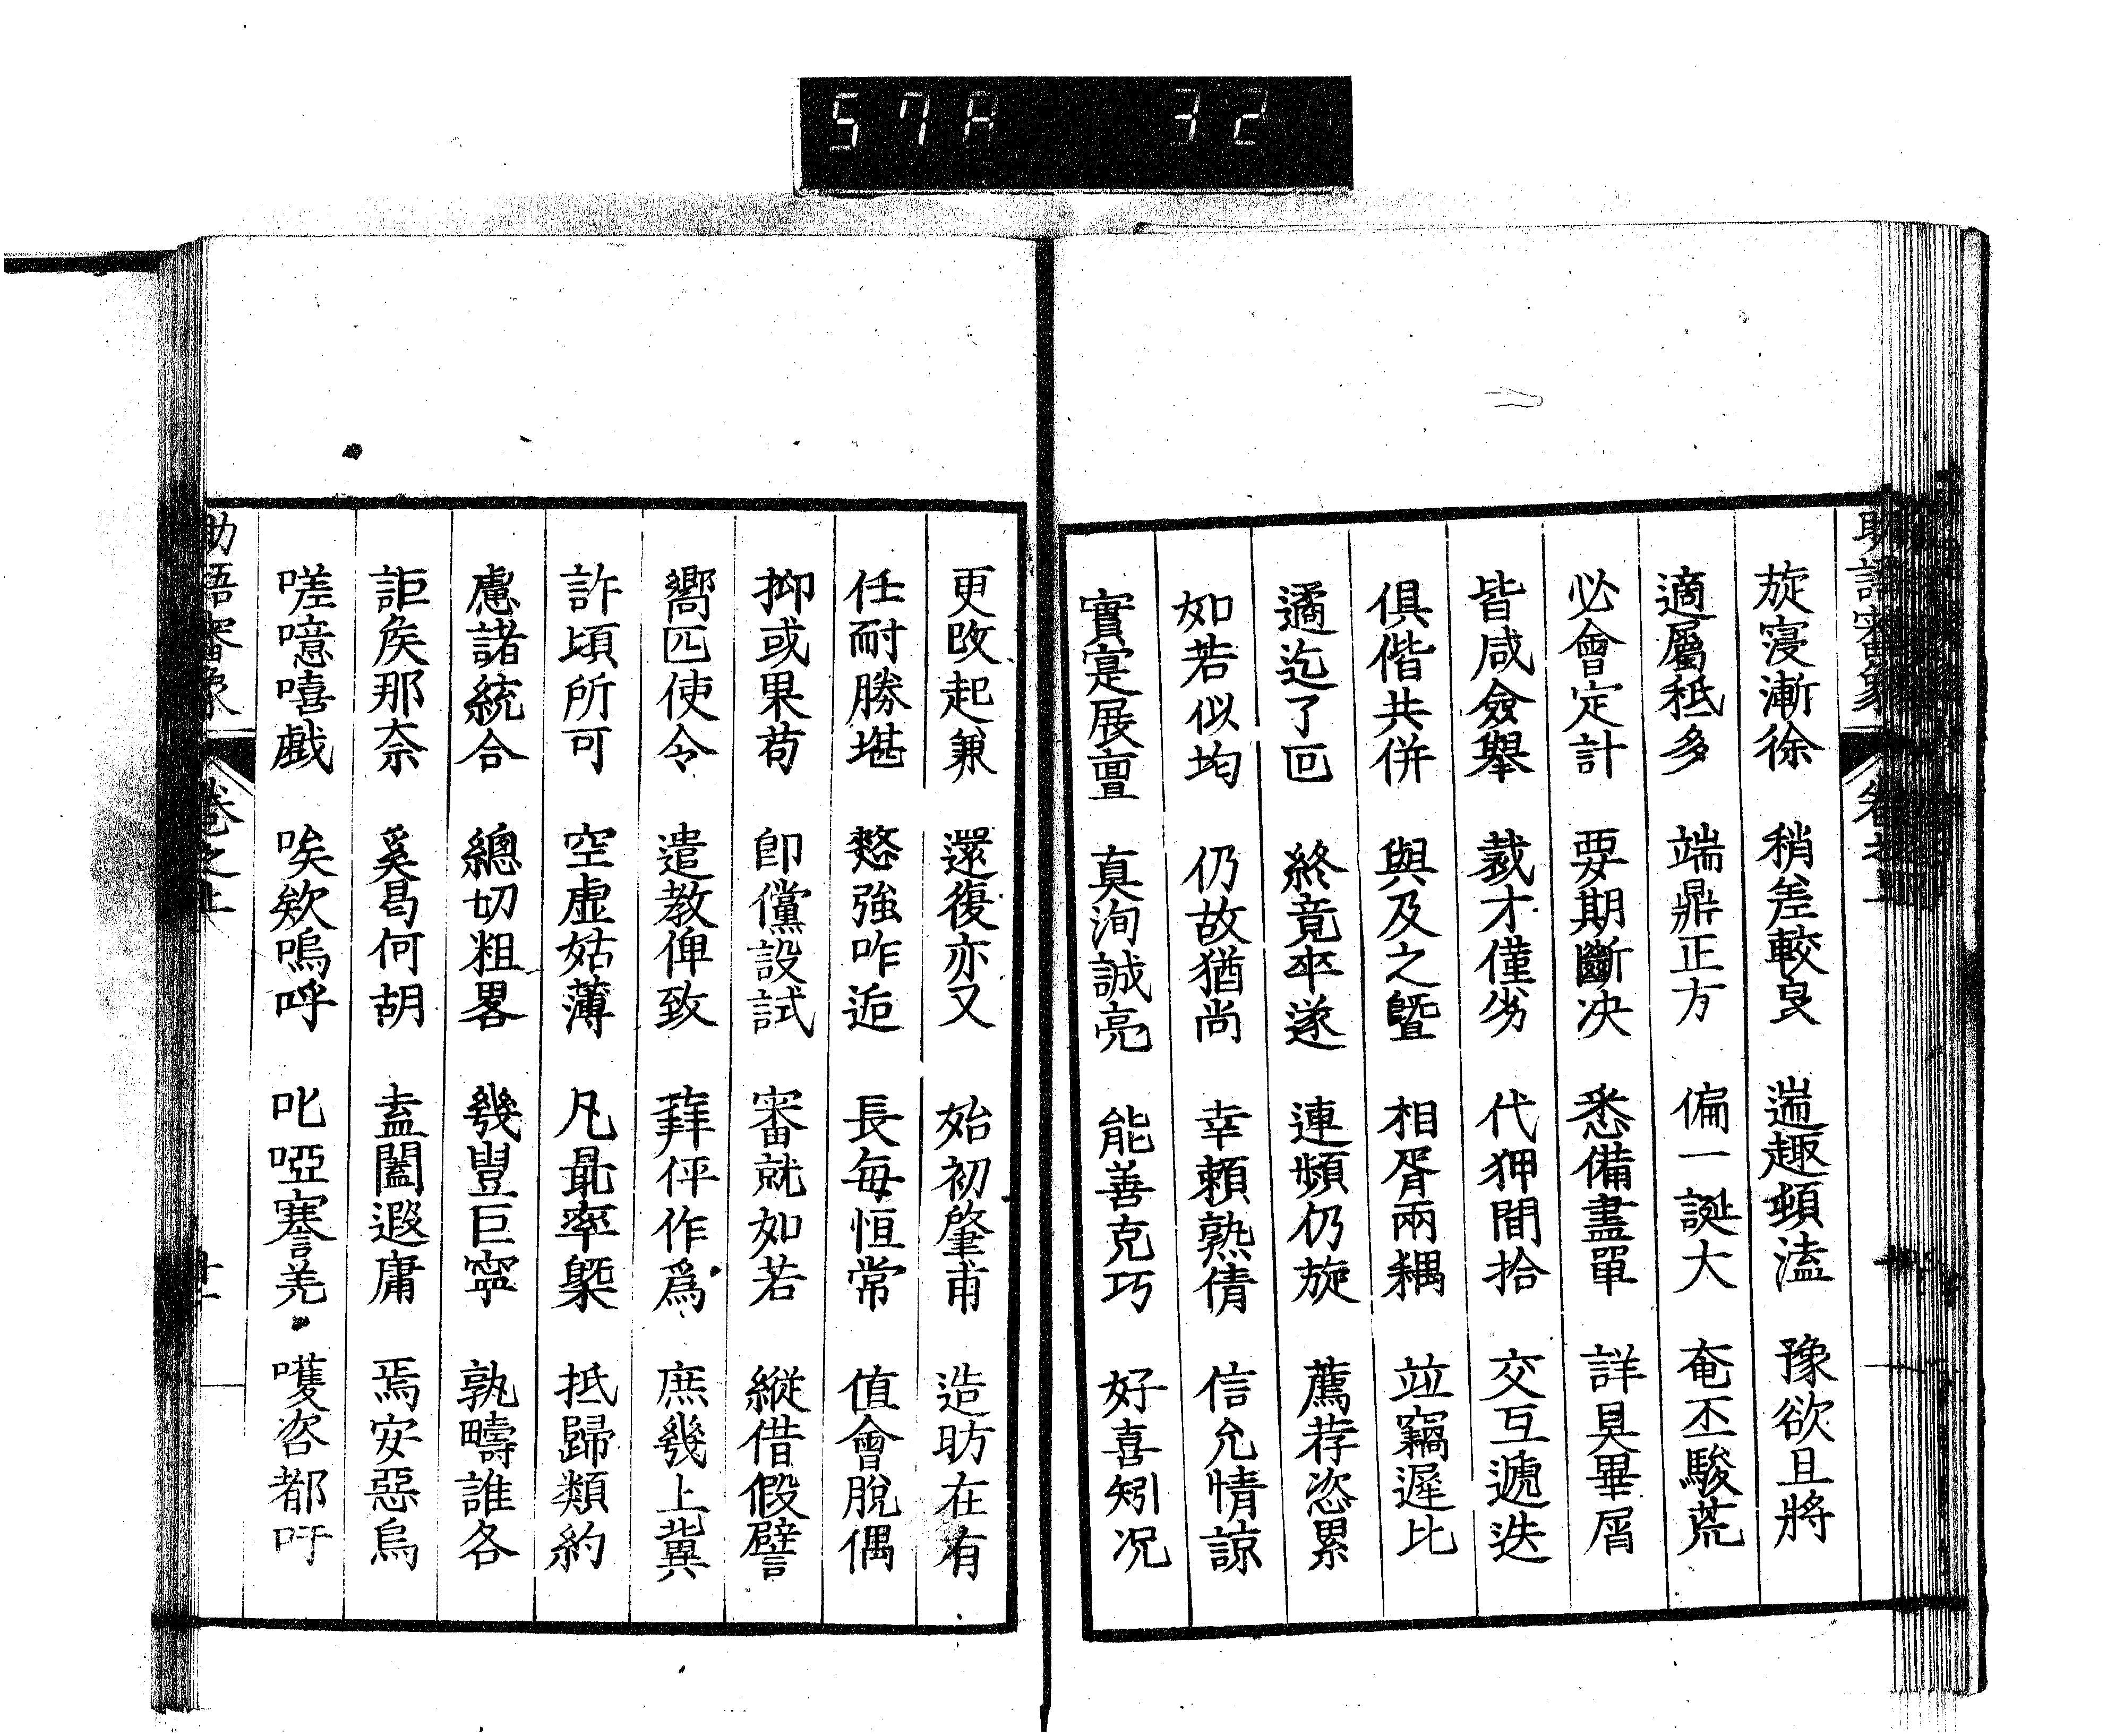 57A 32
助語審象 卷之上
旋寖漸徐 稍差較良 遄趣頓溘 豫欲且將
適屬秪多 端鼎正方 偏一誕大 奄丕駿荒
必會定計 要期斷决 悉備盡單 詳具畢屑
皆咸僉舉 裁才僅劣 代狎間拾 交互遞迭
俱偕共併 與及之曁 相胥兩耦 竝竊遲比
遹迄了回 終竟卒遂 連頻仍旋 薦荐恣累
如若似均 仍故猶尚 幸賴熟倩 信允情諒
實寔展亶 真洵誠亮 能善克巧 好喜矧况
更改起兼 還復亦又 始初肇甫 造昉在有
任耐勝堪 憗強咋逅 長每恒常 值會脫偶
抑或果苟 卽儻設試 審就如若 縱借假譬
嚮匹使令 遣教俾致 拜伻作爲 庶幾上冀
許頃所可 空虛姑薄 凡最率槩 抵歸類約
慮諸統合 總切粗畧 幾豈巨寧 孰疇誰各
詎矣那奈 奚曷何胡 盍闔遐庸 焉安惡烏
嗟噫嘻戲 唉欸嗚呼 叱啞謇羌 嚄咨都吁
助語審象 卷之上